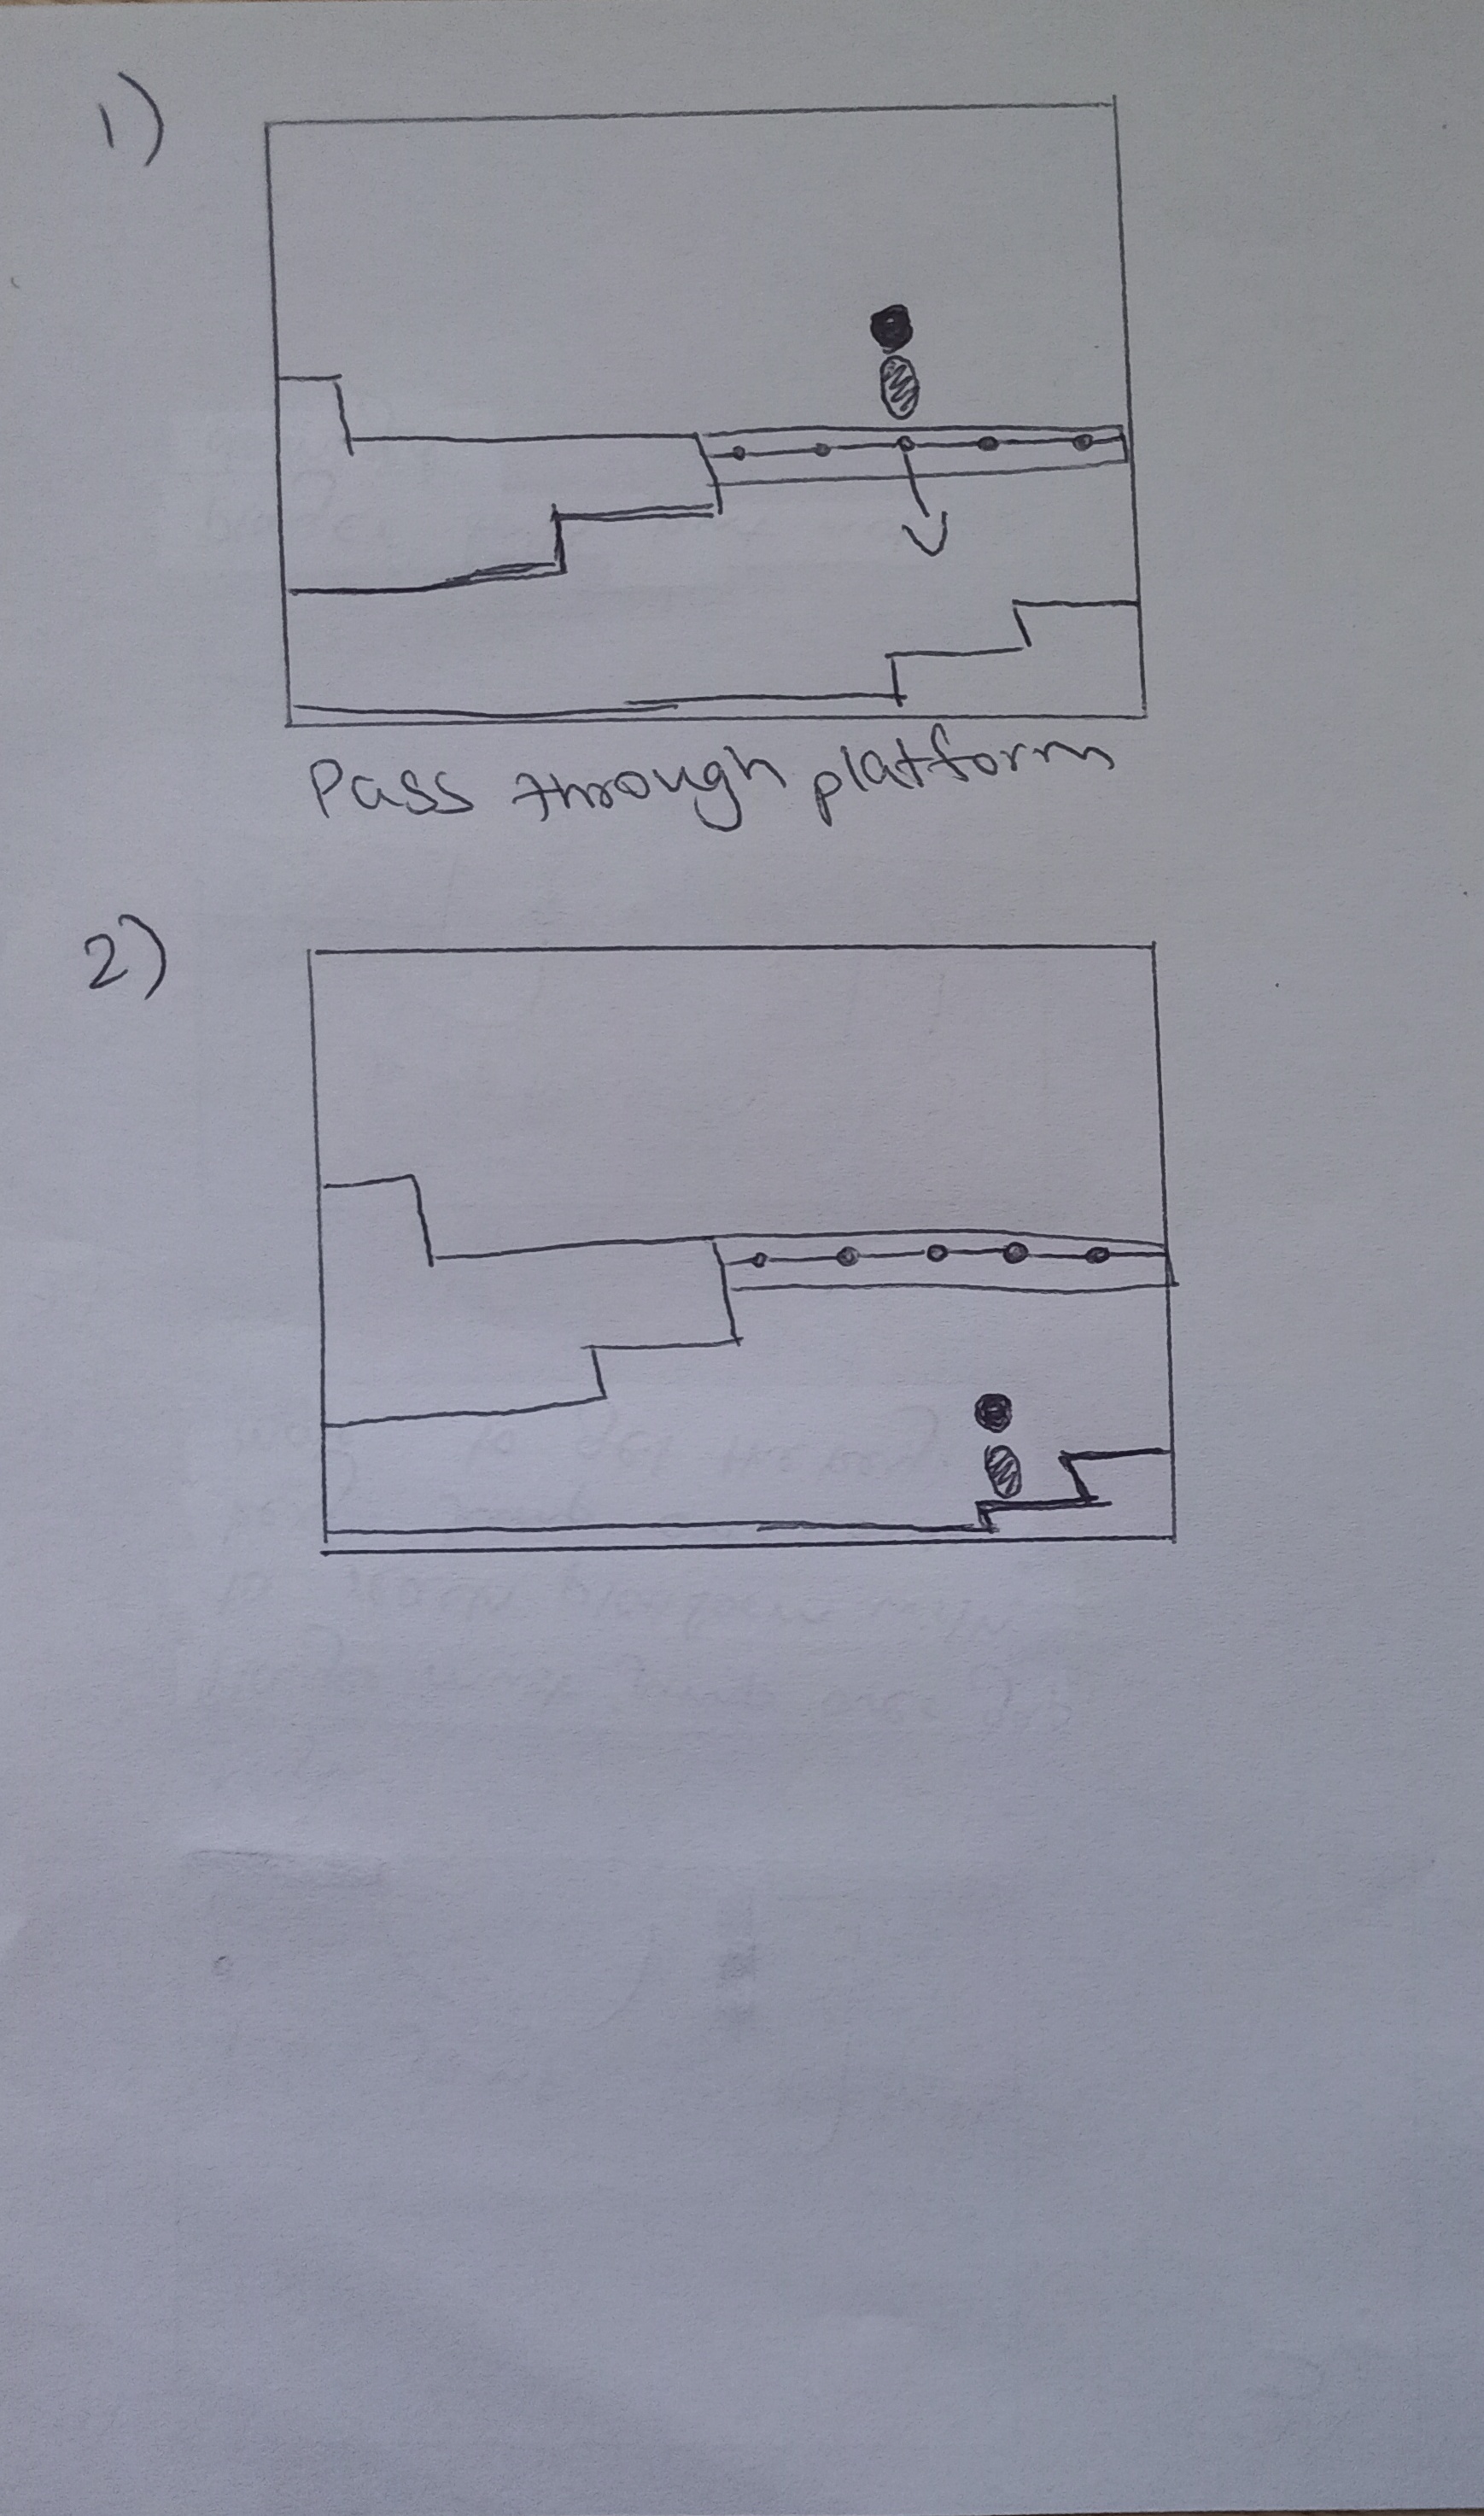 1)
Pass through platform
2)